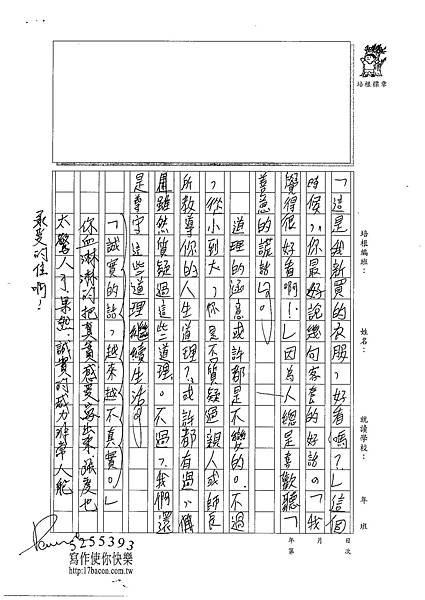 培根標章
培根編班：
姓名：
就讀學校：
年 班
年 月 日
第 次
「這是我新買的衣服，好看嗎？」這個
時候，你最好說幾句客套的好話。「我
覺得很好看啊！」因為人總是喜歡聽「
善意的謊話」。
道理的涵意或許都是不變的。不過
，從小到大，你是不質疑過親人或師長
所教導你的人生道理？或許都有過，儘
雖然質疑過這些道理。不過，我們還
是遵守這些道理繼續生活。
「誠實的話，越來越不真實。」
你血淋淋的把真實感受寫出來
太驚人了果然誠實的威力非常人能
承受的住啊！
5255393
寫作使你快樂
http://17bacon.com.tw